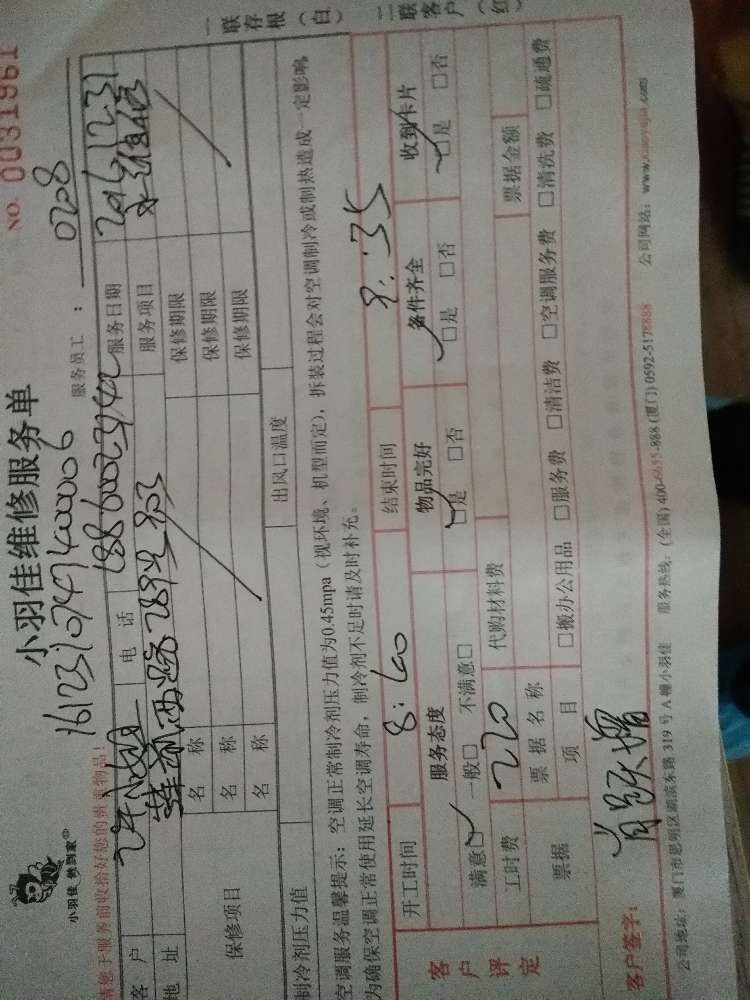 NO. 0031961
小羽佳 做到家
小羽佳维修服务单
16123107474000006
服务员工： 0208
请您于服务前收拾好您的贵重物品!
客 户 许小姐 电 话 18860023942 服务日期 2016.12.31
地 址 莲前西路289号803 服务项目
保修项目
名 称 保修期限
名 称 保修期限
名 称 保修期限
制冷剂压力值 出风口温度
空调服务温馨提示：空调正常制冷剂压力值为0.45mpa（视环境、机型而定），拆装过程会对空调制冷或制热造成一定影响，
为确保空调正常使用延长空调寿命，制冷剂不足时请及时补充。
一联存根（白）
二联客户（红）
客户评定
开工时间 8:00 结束时间 9:35
服务态度 物品完好 备件齐全 收到卡片
满意□ 一般□ 不满意□ □是 □否 □是 □否 □是 □否
工时费 220 代购材料费
票据 票据名称 票据金额
项 目 □搬办公用品 □服务费 □清洁费 □空调服务费 □清洗费 □疏通费
客户签字：
公司地址：厦门市思明区湖滨东路 319 号 A 幢小羽佳 服务热线：(全国) 400-6655-888 (厦门) 0592-5178888 公司网站：www.xiaoyujia.com